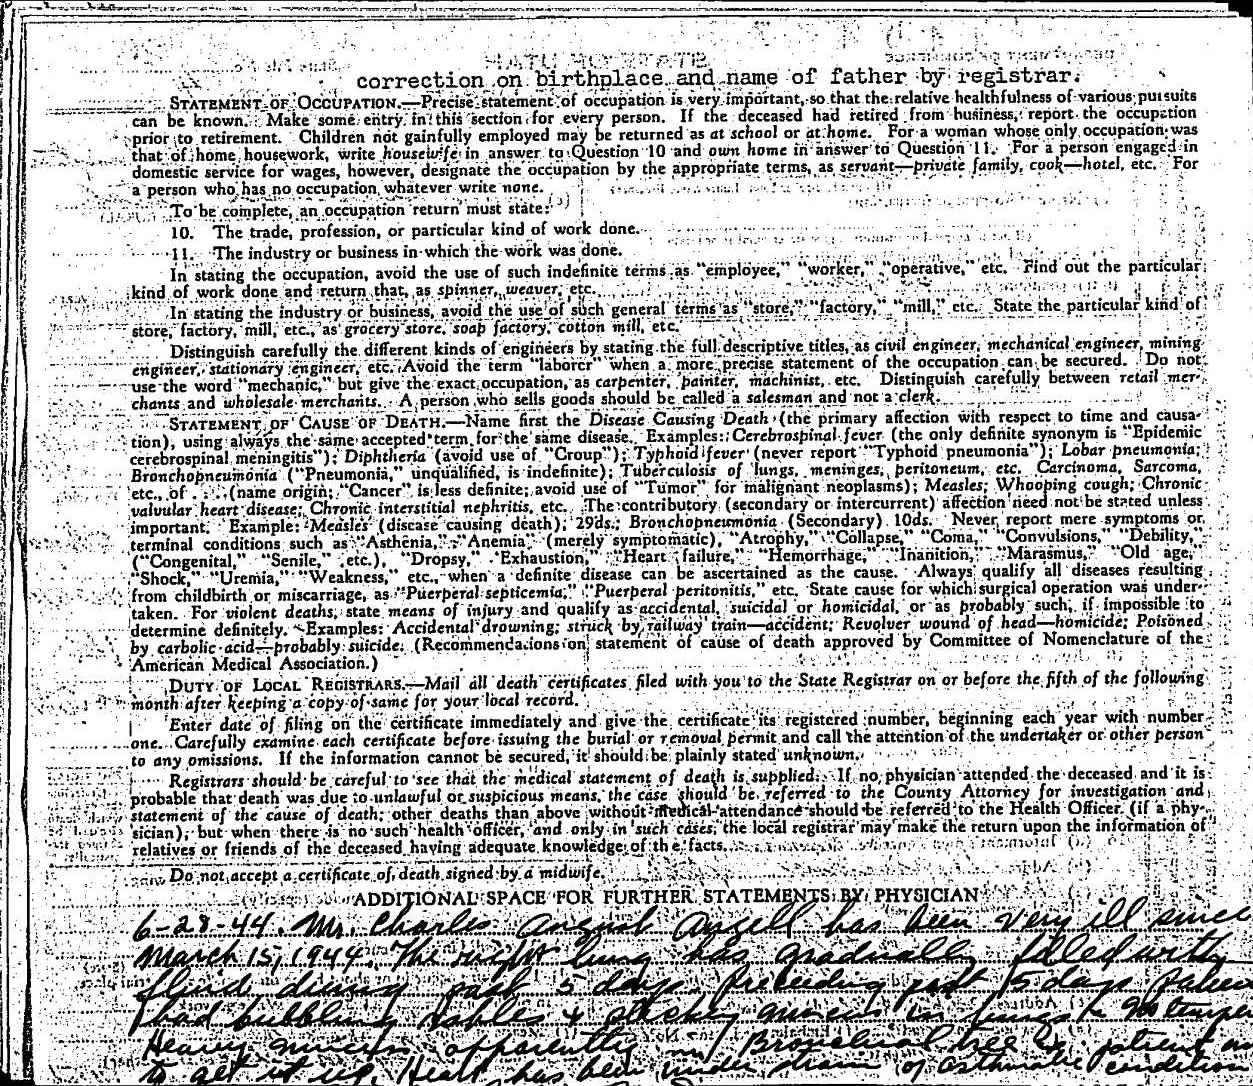 STATE OF UTAH
correction on birthplace and name of father by registrar.
STATEMENT OF OCCUPATION.—Precise statement of occupation is very important, so that the relative healthfulness of various pursuits
can be known. Make some entry in this section for every person. If the deceased had retired from business, report the occupation
prior to retirement. Children not gainfully employed may be returned as at school or at home. For a woman whose only occupation was
that of home housework, write housewife in answer to Question 10 and own home in answer to Question 11. For a person engaged in
domestic service for wages, however, designate the occupation by the appropriate terms, as servant—private family, cook—hotel, etc. For
a person who has no occupation whatever write none.
To be complete, an occupation return must state:
10. The trade, profession, or particular kind of work done.
11. The industry or business in which the work was done.
In stating the occupation, avoid the use of such indefinite terms as "employee," "worker," "operative," etc. Find out the particular
kind of work done and return that, as spinner, weaver, etc.
In stating the industry or business, avoid the use of such general terms as "store," "factory," "mill," etc. State the particular kind of
store, factory, mill, etc., as grocery store, soap factory, cotton mill, etc.
Distinguish carefully the different kinds of engineers by stating the full descriptive titles, as civil engineer, mechanical engineer, mining
engineer, stationary engineer, etc. Avoid the term "laborer" when a more precise statement of the occupation can be secured. Do not
use the word "mechanic," but give the exact occupation, as carpenter, painter, machinist, etc. Distinguish carefully between retail mer-
chants and wholesale merchants. A person who sells goods should be called a salesman and not a clerk.
STATEMENT OF CAUSE OF DEATH.—Name first the Disease Causing Death (the primary affection with respect to time and causa-
tion), using always the same accepted term for the same disease. Examples: Cerebrospinal fever (the only definite synonym is "Epidemic
cerebrospinal meningitis"); Diphtheria (avoid use of "Croup"); Typhoid fever (never report "Typhoid pneumonia"); Lobar pneumonia;
Bronchopneumonia ("Pneumonia," unqualified, is indefinite); Tuberculosis of lungs, meninges, peritoneum, etc. Carcinoma, Sarcoma,
etc., of . . . (name origin; "Cancer" is less definite; avoid use of "Tumor" for malignant neoplasms); Measles; Whooping cough; Chronic
valvular heart disease; Chronic interstitial nephritis, etc. The contributory (secondary or intercurrent) affection need not be stated unless
important. Example: Measles (disease causing death), 29ds.; Bronchopneumonia (Secondary) 10ds. Never report mere symptoms or
terminal conditions such as "Asthenia," "Anemia" (merely symptomatic), "Atrophy," "Collapse," "Coma," "Convulsions," "Debility,"
("Congenital," "Senile," etc.), "Dropsy," "Exhaustion," "Heart failure," "Hemorrhage," "Inanition," "Marasmus," "Old age,"
"Shock," "Uremia," "Weakness," etc., when a definite disease can be ascertained as the cause. Always qualify all diseases resulting
from childbirth or miscarriage, as "Puerperal septicemia," "Puerperal peritonitis," etc. State cause for which surgical operation was under-
taken. For violent deaths, state means of injury and qualify as accidental, suicidal or homicidal, or as probably such, if impossible to
determine definitely. Examples: Accidental drowning; struck by railway train—accident; Revolver wound of head—homicide; Poisoned
by carbolic acid—probably suicide. (Recommendations on statement of cause of death approved by Committee of Nomenclature of the
American Medical Association.)
DUTY OF LOCAL REGISTRARS.—Mail all death certificates filed with you to the State Registrar on or before the fifth of the following
month after keeping a copy of same for your local record.
Enter date of filing on the certificate immediately and give the certificate its registered number, beginning each year with number
one. Carefully examine each certificate before issuing the burial or removal permit and call the attention of the undertaker or other person
to any omissions. If the information cannot be secured, it should be plainly stated unknown.
Registrars should be careful to see that the medical statement of death is supplied. If no physician attended the deceased and it is
probable that death was due to unlawful or suspicious means, the case should be referred to the County Attorney for investigation and
statement of the cause of death; other deaths than above without medical attendance should be referred to the Health Officer (if a phy-
sician), but when there is no such health officer, and only in such cases, the local registrar may make the return upon the information of
relatives or friends of the deceased having adequate knowledge of the facts.
Do not accept a certificate of death signed by a midwife.
ADDITIONAL SPACE FOR FURTHER STATEMENTS BY PHYSICIAN
6-28-44. Mr. Charles August Angell has been very ill since
March 15, 1944. The right lung has gradually filled with
fluid during past 5 days. Preceeding past 5 days patien
had bubbling rahles & sticky mucus in lungs & no temper
Heavy mucus apparently in Bronchial tree & patient un
to get it up. Heart has been under strain of asthmatic condition